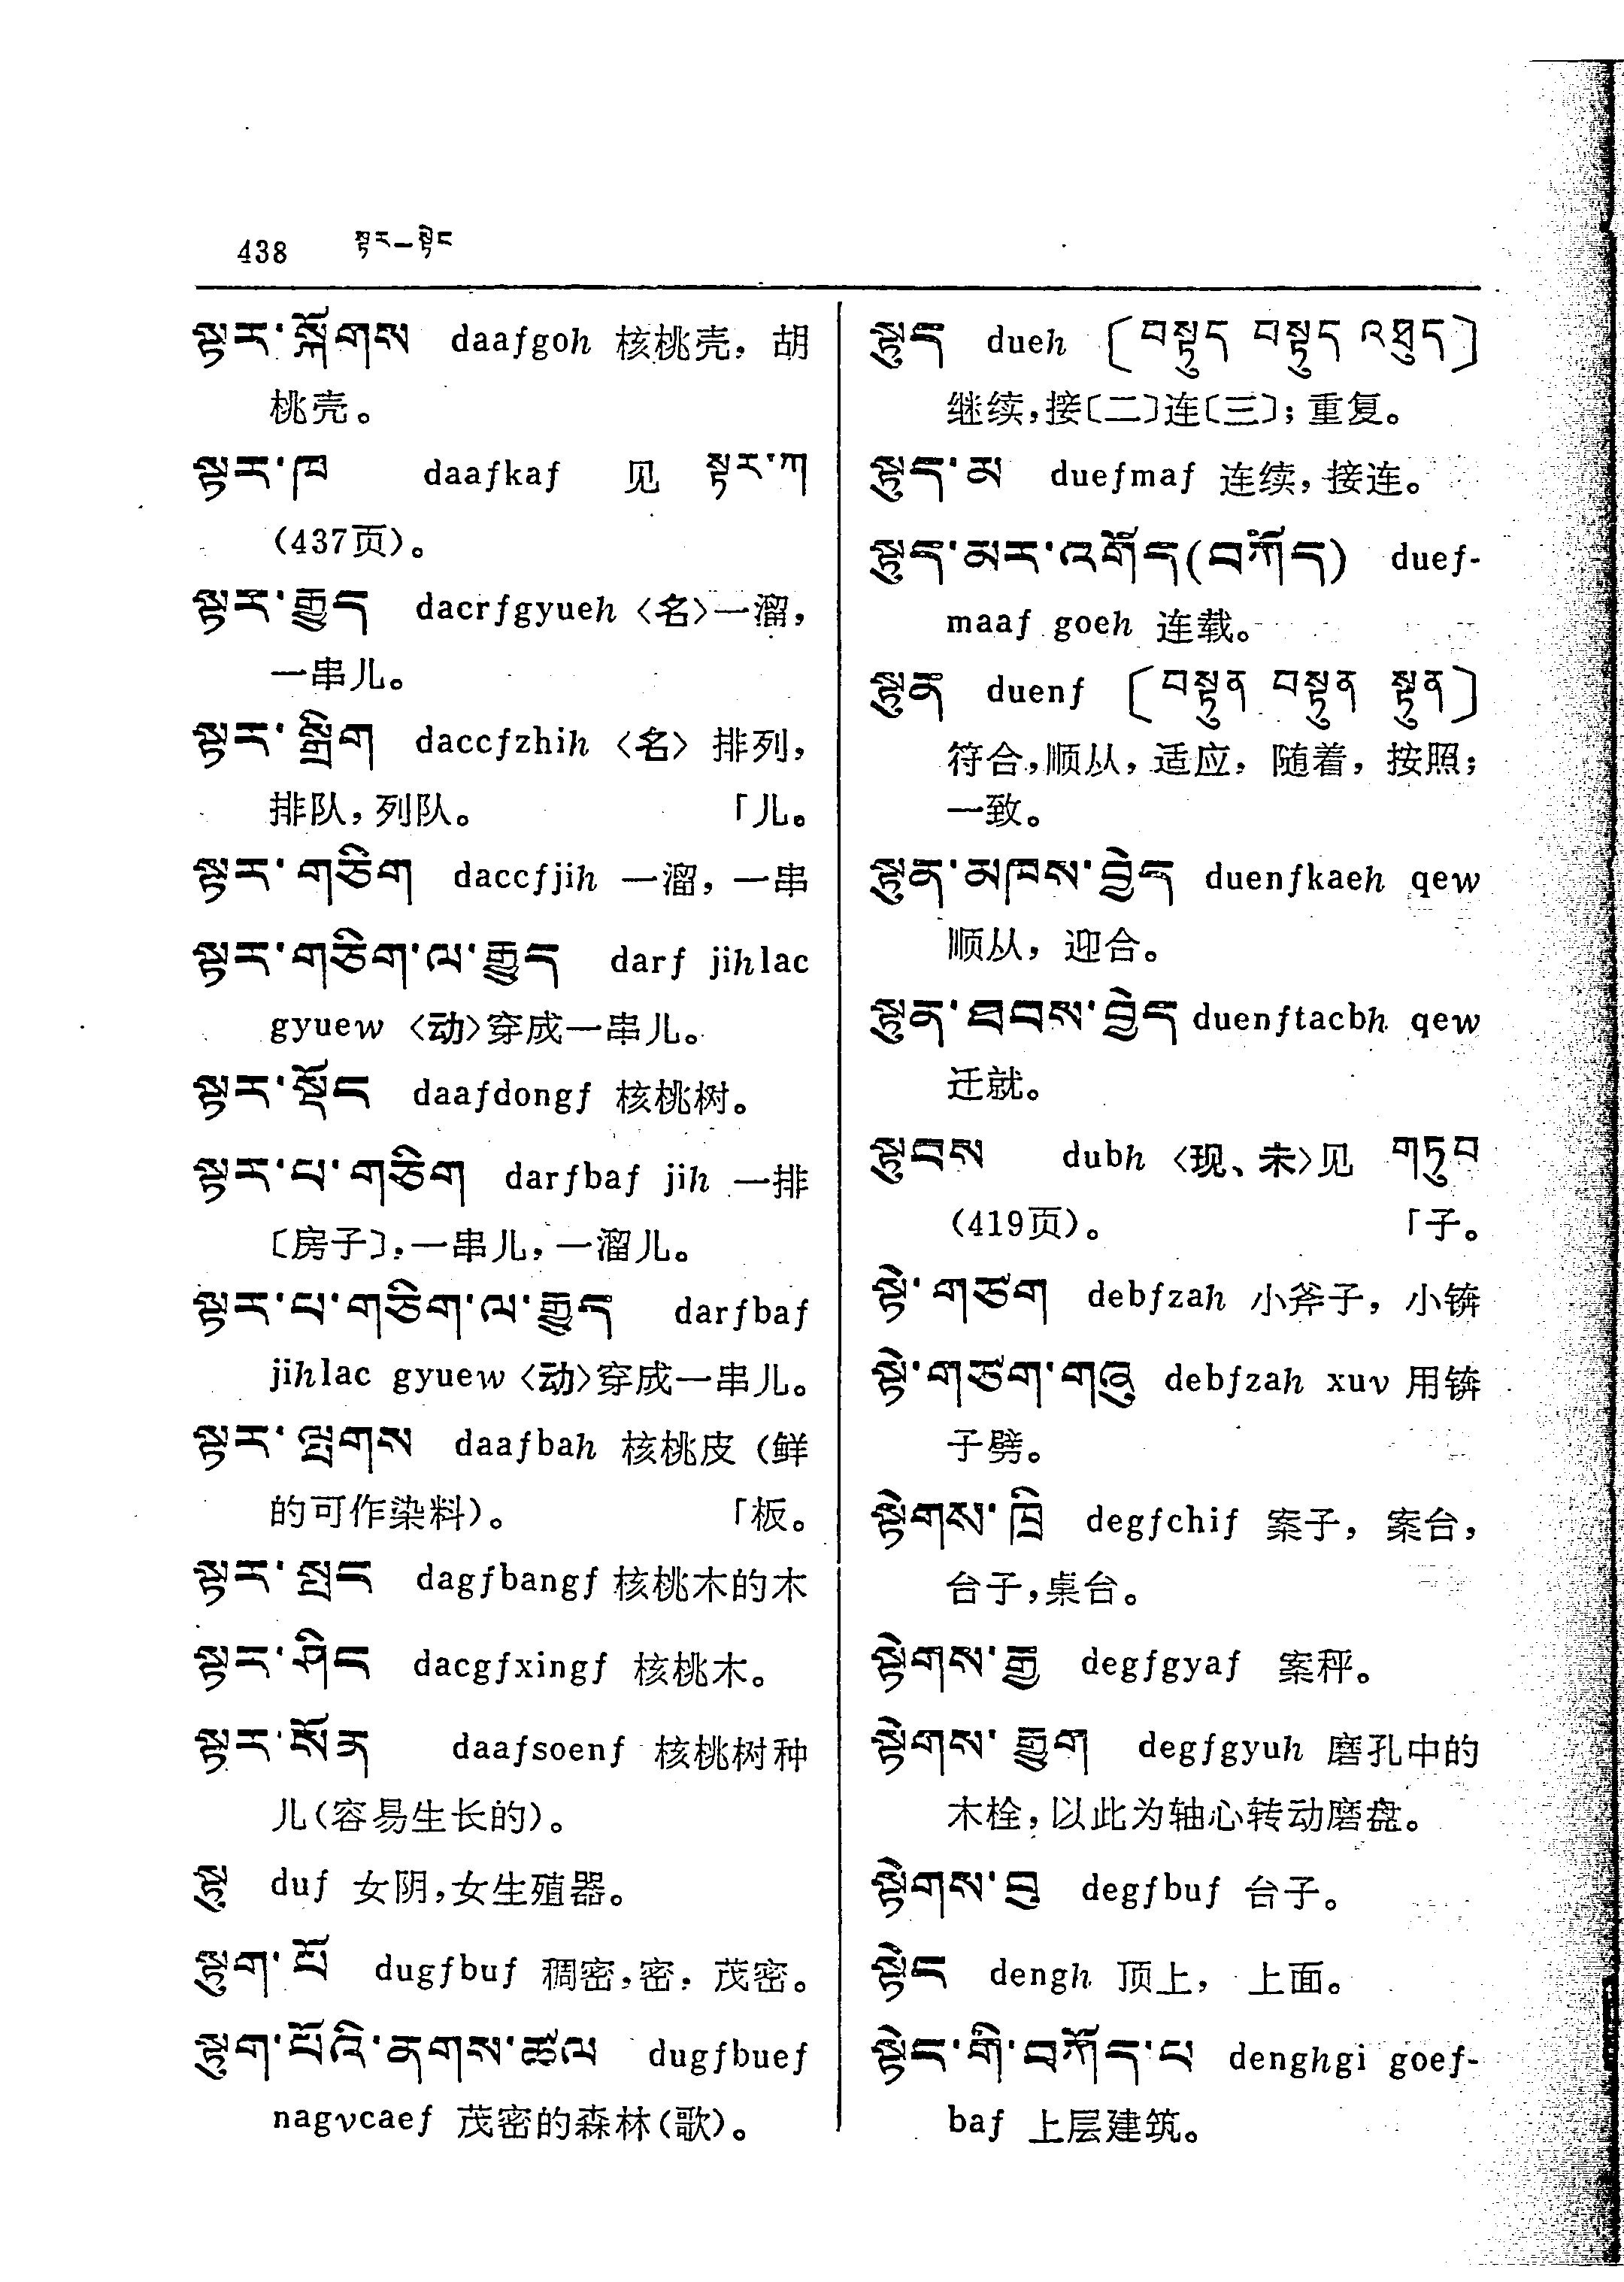 438 སྟར—སྟེང
སྟར་སྐོགས daafgoh 核桃壳，胡
桃壳。
སྟར་ཁ daafkaf 见 སྟར་ཀ
(437页)。
སྟར་རྒྱུད dacrfgyueh 〈名〉一溜，
一串儿。
སྟར་སྒྲིག daccfzhih 〈名〉排列，
排队，列队。 「儿。
སྟར་གཅིག daccfjih 一溜，一串
སྟར་གཅིག་ལ་རྒྱུད darf jihlac
gyuew 〈动〉穿成一串儿。
སྟར་སྡོང daafdongf 核桃树。
སྟར་པ་གཅིག darfbaf jih 一排
〔房子〕，一串儿，一溜儿。
སྟར་པ་གཅིག་ལ་རྒྱུད darfbaf
jihlac gyuew 〈动〉穿成一串儿。
སྟར་ལྤགས daafbah 核桃皮（鲜
的可作染料）。 「板。
སྟར་སྤང dagfbangf 核桃木的木
སྟར་ཤིང dacgfxingf 核桃木。
སྟར་སོན daafsoenf 核桃树种
儿（容易生长的）。
སྟུ duf 女阴，女生殖器。
སྟུག་པོ dugfbuf 稠密，密，茂密。
སྟུག་པོའི་ནགས་ཚལ dugfbuef
nagvcaef 茂密的森林（歌）。
སྟུད dueh 〔བསྟུད བསྟུད འཐུད〕
继续，接〔二〕连〔三〕；重复。
སྟུད་མ duefmaf 连续，接连。
སྟུད་མར་འགོད(བཀོད) duef-
maaf goeh 连载。
སྟུན duenf 〔བསྟུན བསྟུན སྟུན〕
符合，顺从，适应，随着，按照；
一致。
སྟུན་མཁས་བྱེད duenfkaeh qew
顺从，迎合。
སྟུན་ཐབས་བྱེད duenftacbh qew
迁就。
སྟུབས dubh 〈现、未〉见 གཏུབ
(419页)。 「子。
སྟེ་གཙག debfzah 小斧子，小锛
སྟེ་གཙག་གཞུ debfzah xuv 用锛
子劈。
སྟེགས་ཁྲི degfchif 案子，案台，
台子，桌台。
སྟེགས་རྒྱ degfgyaf 案秤。
སྟེགས་རྒྱུག degfgyuh 磨孔中的
木栓，以此为轴心转动磨盘。
སྟེགས་བུ degfbuf 台子。
སྟེང dengh 顶上，上面。
སྟེང་གི་བཀོད་པ denghgi goef-
baf 上层建筑。